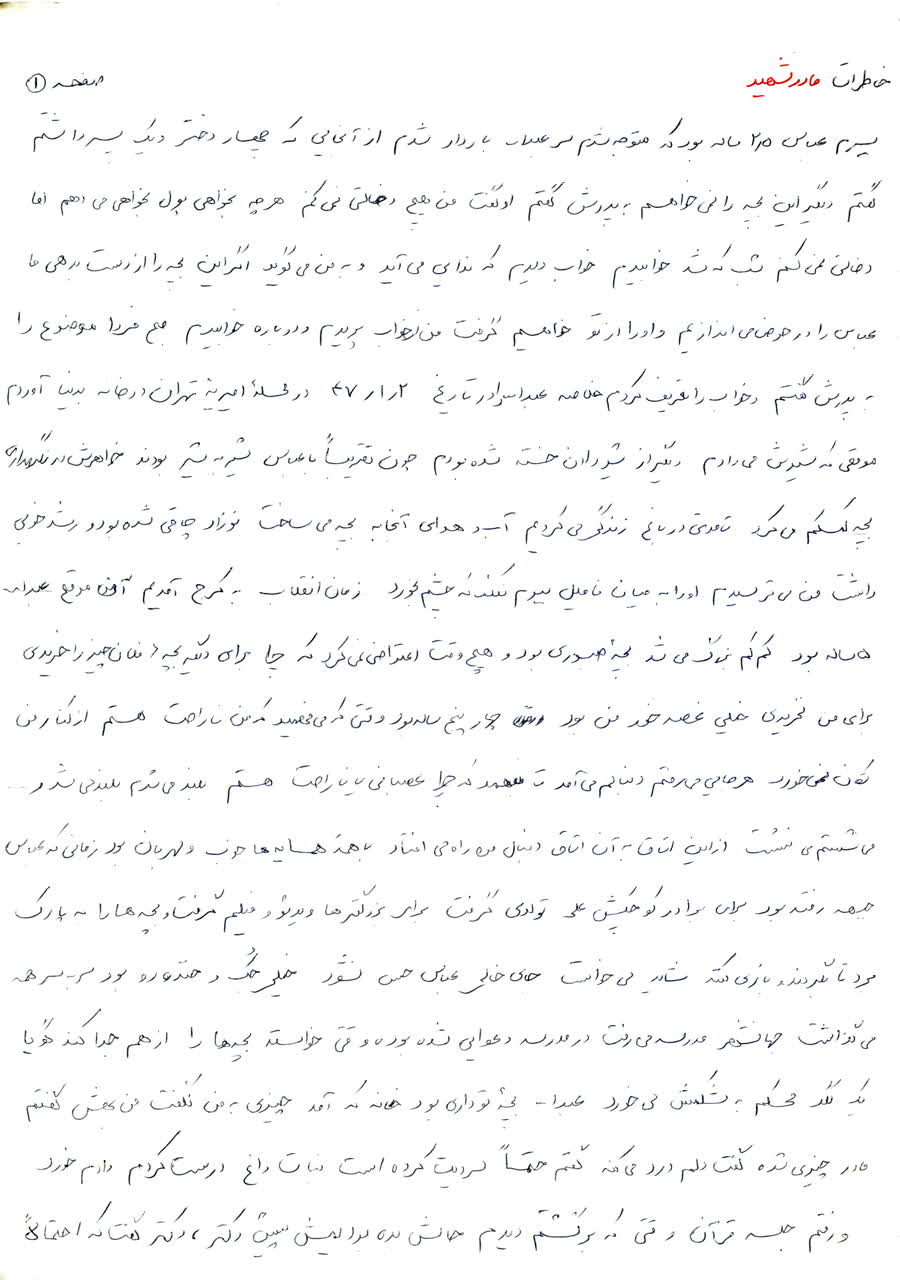 خاطرات مادر شهید صفحه ۱
پسرم عباس ۲/۵ ساله بود که متوجه شدم سر عبداله باردار شدم از آنجایی که چهار دختر و یک پسر داشتم
گفتم دیگر این بچه را نمی خواهم به پدرش گفتم او گفت من هیچ دخالتی نمی کنم هر چه بخواهی پول بخواهی می دهم اما
دخالتی نمی کنم شب که شد خوابیدم خواب دیدم که ندایی می آید و به من می گوید اگر این بچه را از دست بدهی ما
عباس را در حوض می اندازیم و او را از تو خواهیم گرفت من از خواب پریدم و دوباره خوابیدم صبح فردا موضوع را
به پدرش گفتم و خواب را تعریف کردم خلاصه عبداله را در تاریخ ۴۷/۱/۲ در محلهٔ امیریهٔ تهران در خانه بدنیا آوردم
موقعی که شیرش می دادم دیگر از شیر دادن خسته شده بودم چون تقریباً با عباس شیر به شیر بودند خواهرش در نگهداری
بچه کمکم می کرد تا مدتی در باغ زندگی می کردیم آب و هوای آنجا به بچه می ساخت نوزاد چاقی شده بود و رشد خوبی
داشت من می ترسیدم او را به میان فامیل ببرم نکند که چشم بخورد زمان انقلاب به کرج آمدیم آن موقع عبداله
۵ ساله بود کم کم بزرگ می شد بچهٔ صبوری بود و هیچ وقت اعتراضی نمی کرد که چرا برای دیگر بچه ها فلان چیز را خریدی
برای من نخریدی خیلی غصه خور من بود چهار پنج ساله بود وقتی که می فهمید که من ناراحت هستم از کنار من
تکان نمی خورد هر جایی می رفتم دنبالم می آمد تا بفهمد که چرا عصبانی یا ناراحت هستم بلند می شدم بلند می شد و ...
می نشستم می نشست از این اتاق به آن اتاق دنبال من راه می افتاد با همهٔ همسایه ها خوب و مهربان بود زمانی که عباس
جبهه رفته بود برای برادر کوچکش علی تولدی گرفت برای بزرگترها ویدئو و فیلم گرفت و بچه ها را به پارک
برد تا بگردند و بازی کنند شاید می خواست جای خالی عباس حس نشود خیلی جُک و خنده رو بود سر به سر همه
می گذاشت جهانشهر مدرسه می رفت در مدرسه دعوایی شده بوده وقتی خواسته بچه ها را از هم جدا کند گویا
یک لگد محکم به شکمش می خورد عبداله بچهٔ توداری بود خانه که آمد چیزی به من نگفت من بهش گفتم
مادر چیزی شده گفت دلم درد می کند گفتم حتماً سردیت کرده است نبات داغ درست کردم دادم خورد
و رفتم جلسه قرآن وقتی که برگشتم دیدم حالش بده بردیمش پیش دکتر، دکتر گفت که احتمالاً